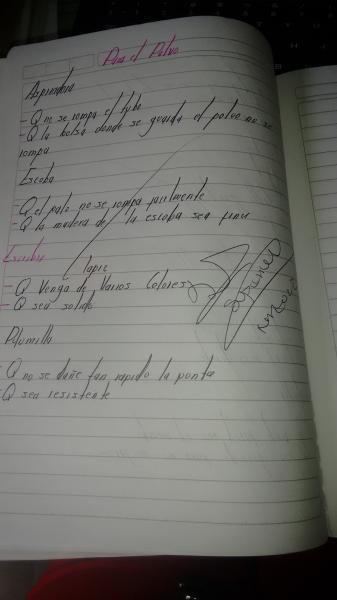 Para el Polvo
Aspiradora
- Q no se rompa el tubo
- Q la bolsa donde se guarda el polvo no se
rompa
Escoba
- Q el palo no se rompa facilmente
- Q la madera de la escoba sea fina
Escribir
lapiz
- Q Venga de Varios Colores
- Q sea solido
Plumilla
- Q no se dañe tan rapido la punta
- Q sea resistente